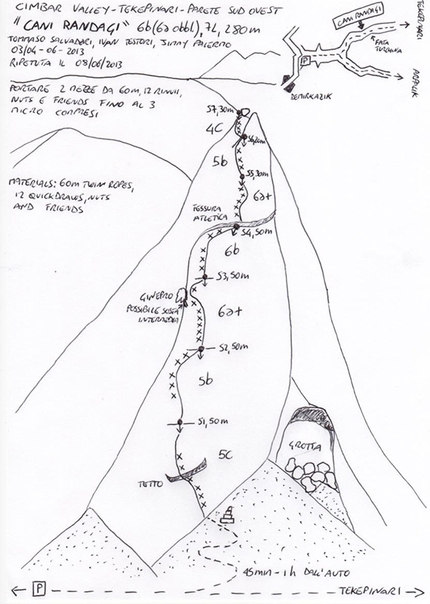 CIMBAR VALLEY-TEKEPINARI-PARETE SUD OVEST
"CANI RANDAGI" 6b(6a obbl), 7L, 280m
TOMMASO SALVADORI, IVAN TESTORI, JIMMY PALERMO
03/04-06-2013
RIPETUTA IL 09/06/2013
PORTARE 2 MEZZE DA 60m, 12 RINVII,
NUTS E FRIENDS FINO AL 3
MICRO COMPRESI
MATERIALS: 60m TWIN ROPES,
12 QUICKDRAWS, NUTS
AND FRIENDS
CANI RANDAGI
TEKEPINARI
P
DEMIRKAZIK
S7, 30m
4C
5b
S5, 30m
6a+
FESSURA
ATLETICA
S4, 50m
6b
S3, 50m
GINEPRO
POSSIBILE SOSTA
INTERMEDIA
6a+
S2, 50m
5b
S1, 50m
5C
TETTO
GROTTA
45 MIN - 1h DALL'AUTO
P
TEKEPINARI